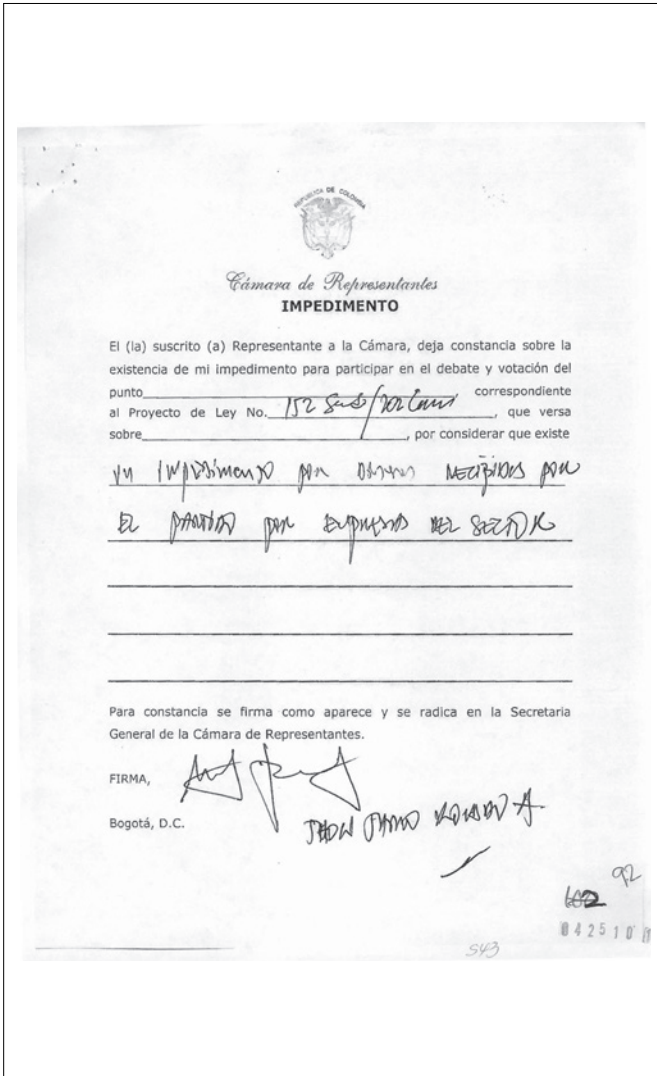 REPUBLICA DE COLOMBIA
Cámara de Representantes
IMPEDIMENTO
El (la) suscrito (a) Representante a la Cámara, deja constancia sobre la
existencia de mi impedimento para participar en el debate y votación del
punto correspondiente
al Proyecto de Ley No. 152 / 202 , que versa
sobre , por considerar que existe
un impedimento por recibidos por
EL partido por empresas DEL SECTOR
Para constancia se firma como aparece y se radica en la Secretaria
General de la Cámara de Representantes.
FIRMA,
Bogotá, D.C.
92
042510
543